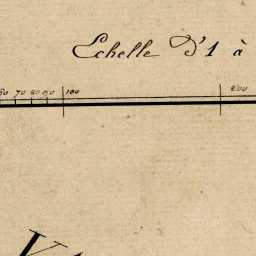 Echelle D'1 à
60 70 80 90 100 200